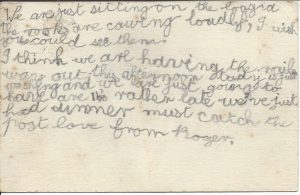 We are just sitting on the loggia
the rooks are cawing loudly, I wish
you could see them.
I think we are having the rail
way out this afternoon daddy is just
washing and we are just going to
have are rather late we've just
had dinner must catch the
post love from Roger.